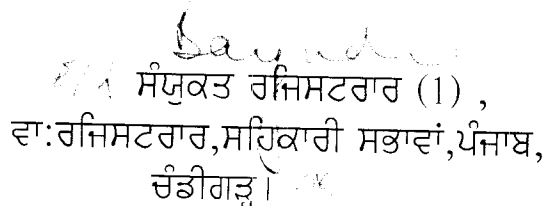 ਸੰਯੁਕਤ ਰਜਿਸਟਰਾਰ (1) ,
ਵਾ:ਰਜਿਸਟਰਾਰ,ਸਹਿਕਾਰੀ ਸਭਾਵਾਂ,ਪੰਜਾਬ,
ਚੰਡੀਗੜ੍ਹ।